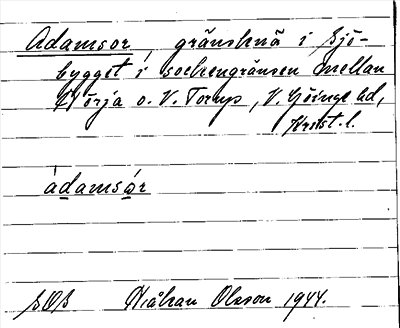 Adamsor, gränsknä i Sjö-
bygget i sockengränsen mellan
Nörja o. V. Torup, V. Göinge hd,
Krist. l.
àdamsór
SOB Håkan Olsson 1944.